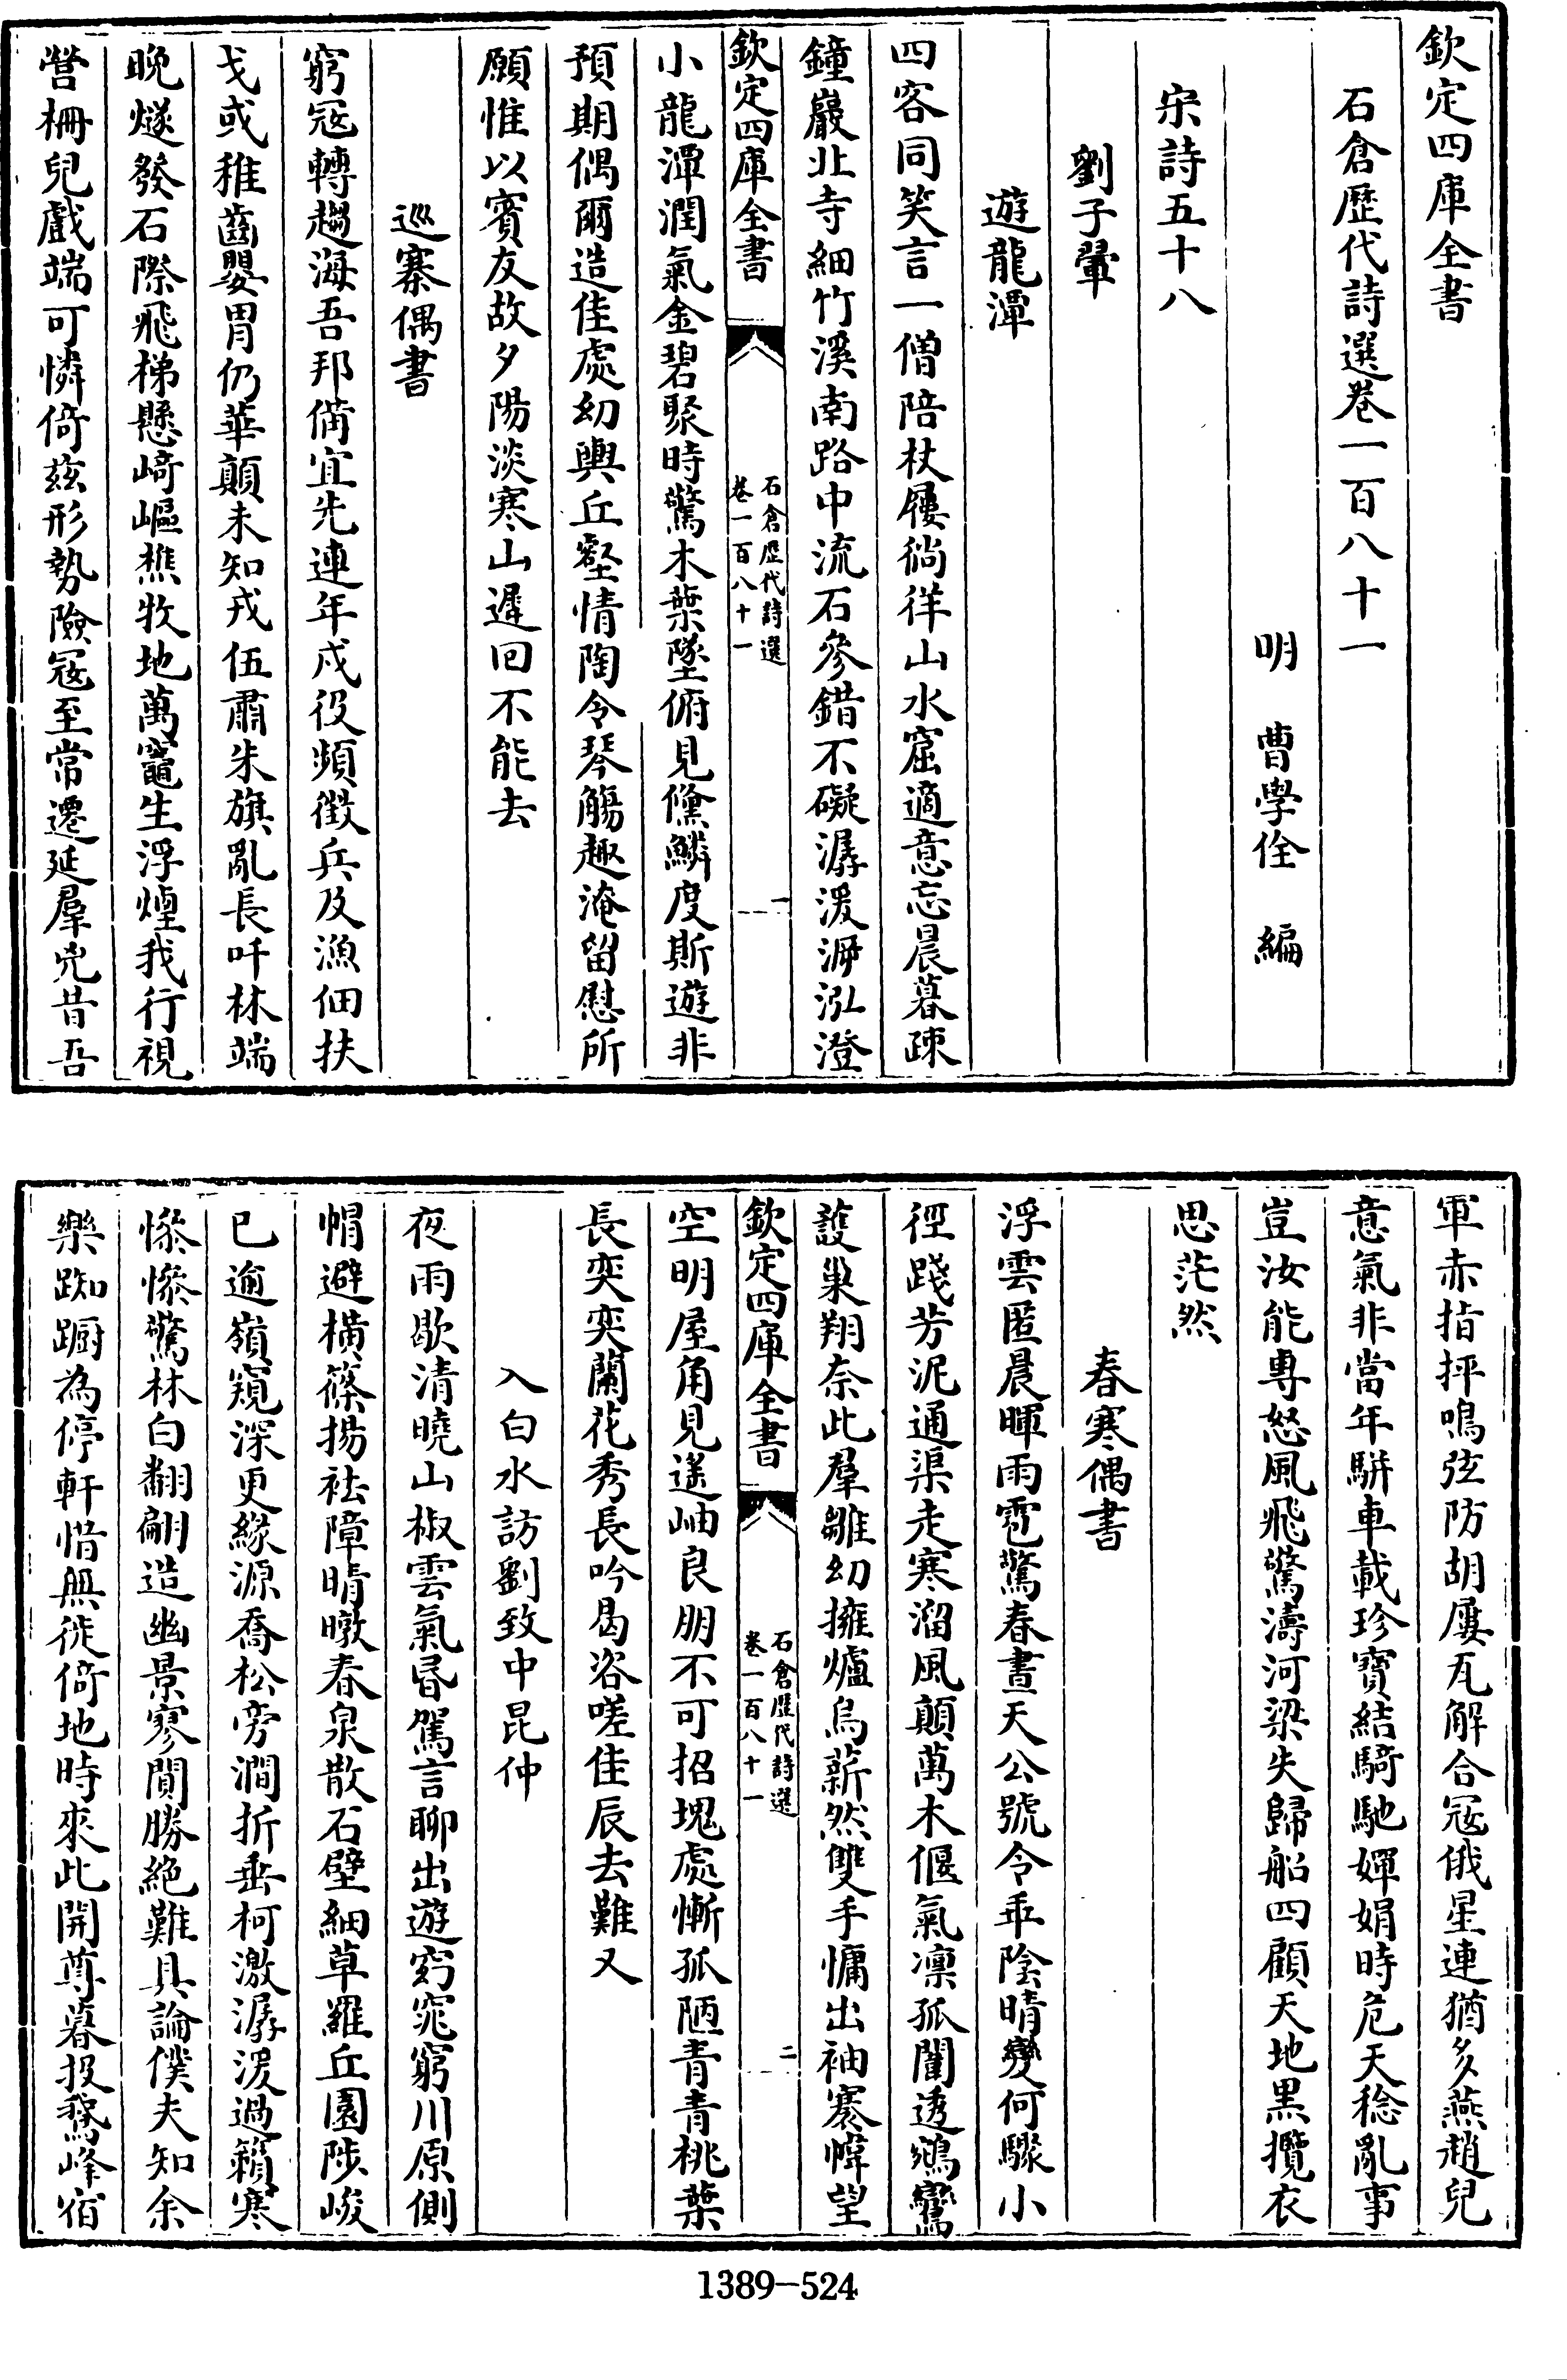 欽定四庫全書
石倉歷代詩選卷一百八十一
明 曹學佺 編
宋詩五十八
劉子翬
遊龍潭
四客同笑言一僧陪杖屨徜徉山水窟適意忘晨暮疎
鐘巖北寺細竹溪南路中流石參錯不礙潺湲泝泓澄
欽定四庫全書
石倉歷代詩選
卷一百八十一
一
小龍潭潤氣金碧聚時驚木葉墜俯見儵鱗度斯遊非
預期偶爾造佳處幼輿丘壑情陶令琴觴趣淹留慰所
願惟以賓友故夕陽淡寒山遲回不能去
巡寨偶書
窮寇轉趨海吾邦備宜先連年戍役頻徵兵及漁佃扶
戈或稚齒嬰胄仍華顛未知戎伍肅朱旗亂長吀林端
晚燧發石際飛梯懸﨑嶇樵牧地萬竈生浮煙我行視
營柵兒戲端可憐倚茲形勢險寇至常遷延羣兇昔吾
軍赤指抨鳴弦防胡屢瓦解合寇俄星連猶多燕趙兒
意氣非當年駢車載珍寶結騎馳嬋娟時危天稔亂事
豈汝能專怒風飛驚濤河梁失歸船四顧天地黑攬衣
思茫然
春寒偶書
浮雲匿晨暉雨雹驚春晝天公號令乖陰晴變何驟小
徑踐芳泥通渠走寒溜風顛萬木偃氣凜孤闈透鵷鸞
護巢翔奈此羣雛幼擁爐烏薪然雙手慵出袖褰幃望
欽定四庫全書
石倉歷代詩選
卷一百八十一
二
空明屋角見遙岫良朋不可招塊處慚孤陋青青桃葉
長奕奕蘭花秀長吟曷咨嗟佳辰去難又
入白水訪劉致中昆仲
夜雨歇清曉山椒雲氣昏駕言聊出遊窈窕窮川原側
帽避橫篠揚袪障晴暾春泉散石壁細草羅丘園陟峻
已逾嶺窺深更緣源喬松旁澗折垂柯激潺湲過籟寒
慘慘驚林白翻翩造幽景寥閴勝絕難具論僕夫知余
樂踟躕為停軒惜無徙倚地時來此開尊暮投鵞峰宿
1389-524